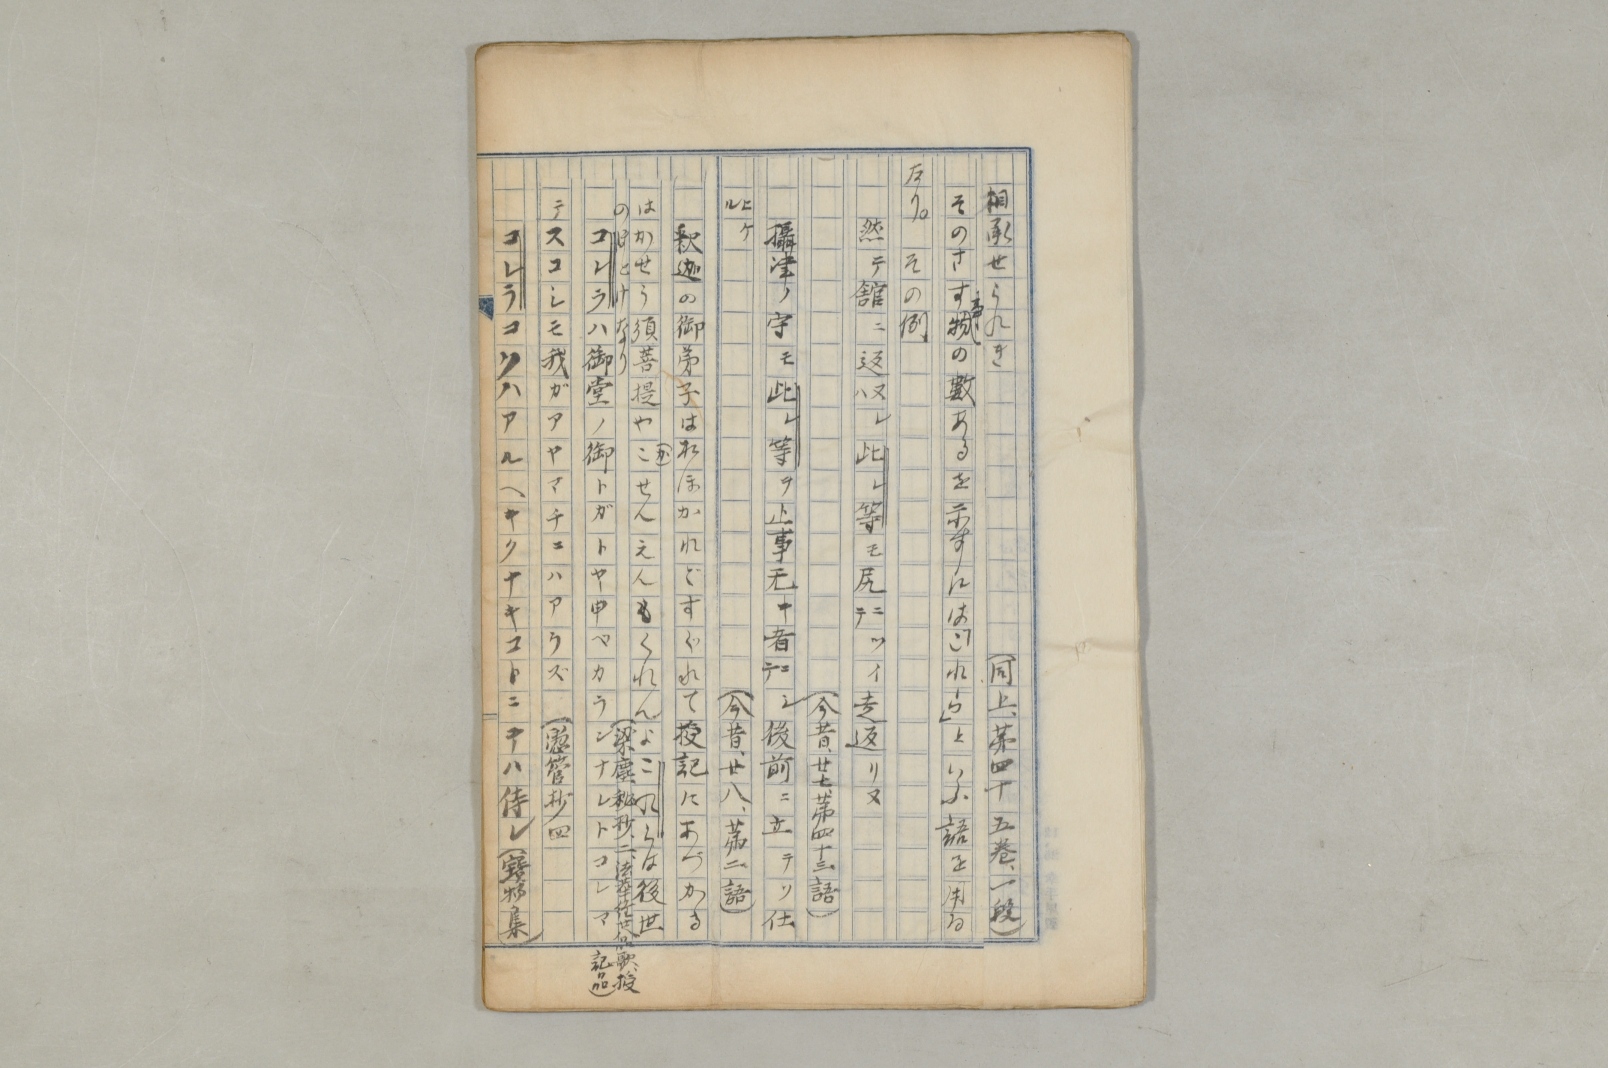 相承せられき
(同上、第四十五巻、一段)
そのさす物事の數あるを示すにはこれらといふ語を用ゐ
たり。その例
然テ館ニ返ヌレハ此レ等モ尻ニツイテ走返リヌ
(今昔、廿七、第四十三語)
攝津ノ守モ此レ等ヲ止事无キ者ニシテ後前ニ立テゾ仕
ヒケル
(今昔、廿八、第二語)
釈迦の御弟子はおほかれどすぐれて授記にあづかる
はかせう須菩提やかこせんえんもくれんよこれらは後世
の佛とけなり
(梁塵秘抄、二、法華経廿八品歌、授記品)
コレラハ御堂ノ御トガトヤ申ベカランナレトコレマ
テスコシモ我ガアヤマチニハアラズ
(愚管抄四
コレラコソハアルヘキクナキコトニテハ侍レ
(寶物集)